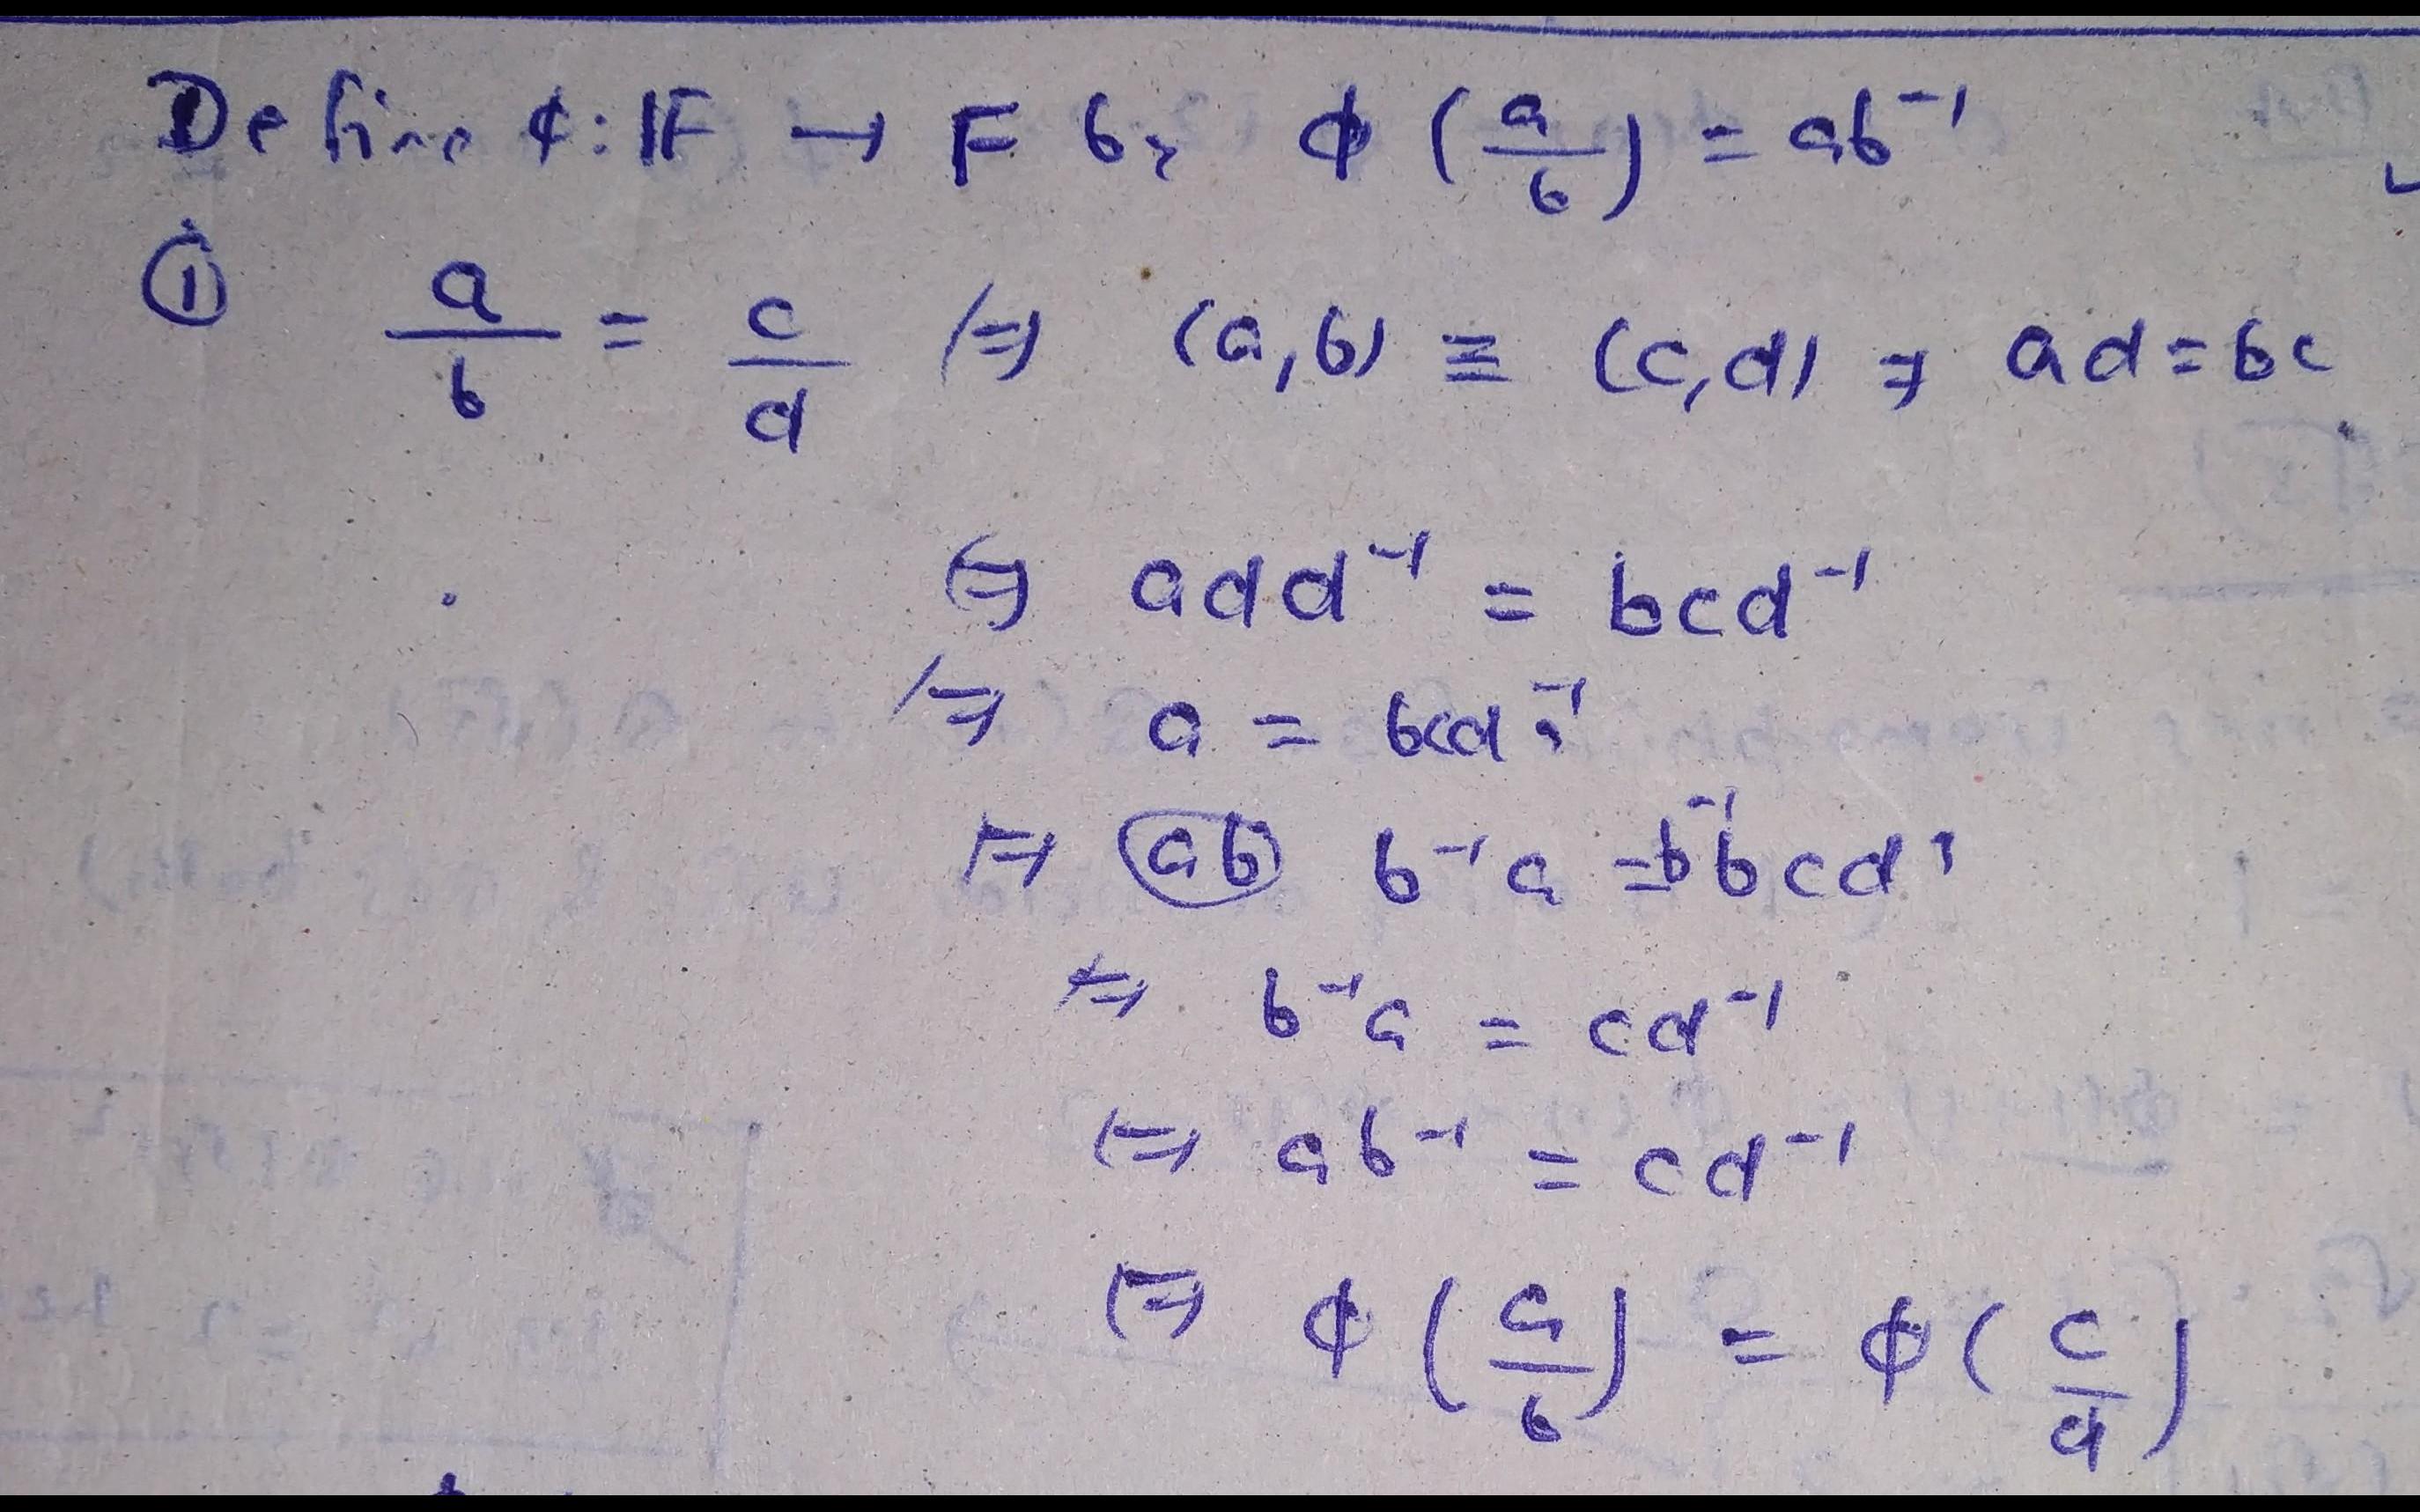 Define ϕ: 𝔽 → F by ϕ(a/b) = ab⁻¹
① a/b = c/d ⇔ (a,b) ≡ (c,d) ⇒ ad = bc
⇔ add⁻¹ = bcd⁻¹
⇔ a = bcd⁻¹
⇔ ab b⁻¹a = b⁻¹bcd⁻¹
⇔ b⁻¹a = cd⁻¹
⇔ ab⁻¹ = cd⁻¹
⇔ ϕ(a/b) = ϕ(c/d)